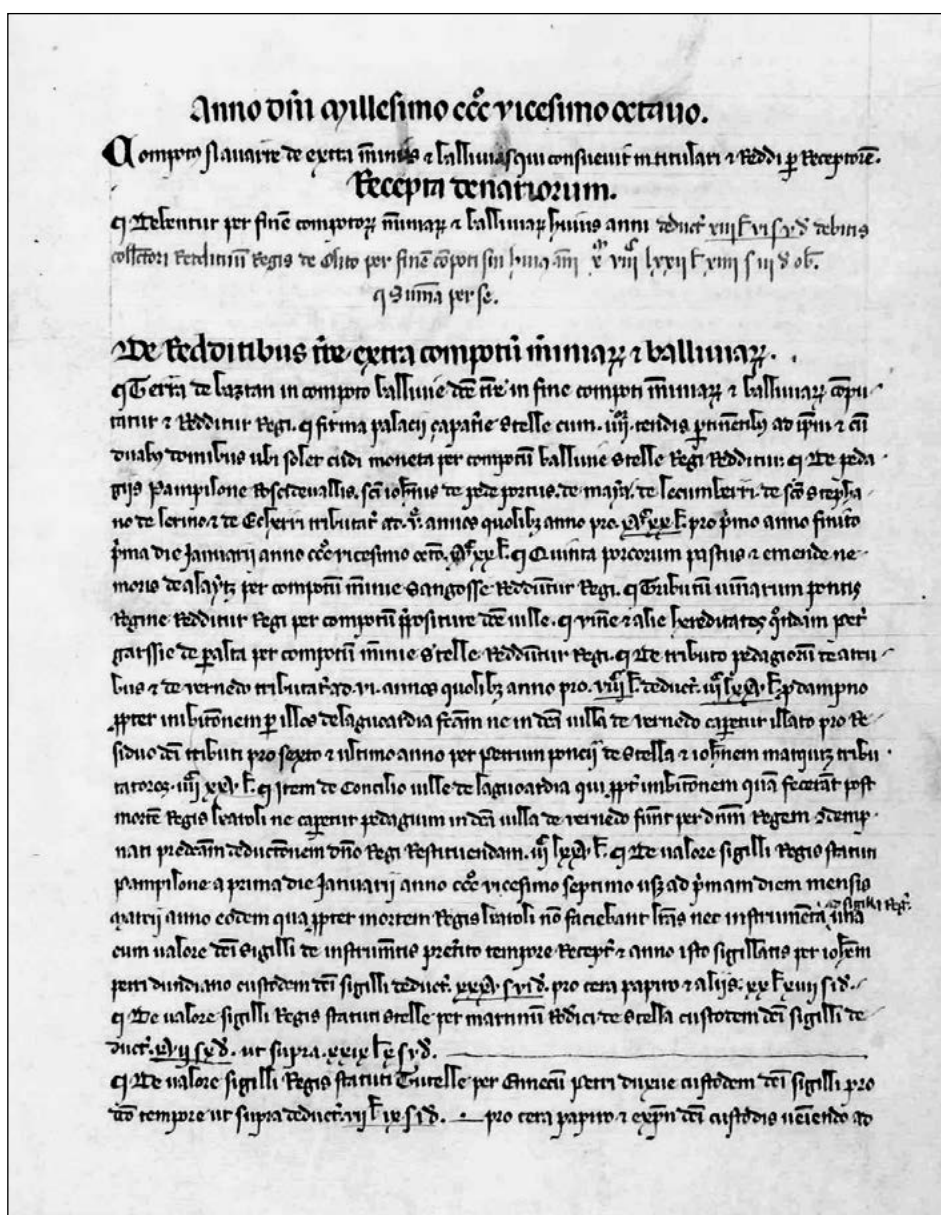 Anno dni Millesimo ccc vicesimo octauo.
Compot nauarre de extra miniis ⁊ balliuias qui consueuit intitulari ⁊ Reddi p Receptore.
Recepta denariorum.
¶ Debentur per fine compotoꝝ miniaꝝ ⁊ balliuiaꝝ huius anni deduct xiii l vi s v d debitis
collectori Reddituum Regis de Olito per fine compoti sui huius anni viii lxxii l xiiii s iii d ob.
¶ Summa per se.
De Redditibus tre extra compotu miniaꝝ ⁊ balliuiaꝝ.
¶ Terra de baztan in compoto balliuie dce tre in fine compoti miniaꝝ ⁊ balliuiaꝝ compu
tatur ⁊ Redditur Regi. ¶ firma palacii çapatie Stelle cum iiii tendis ptinentibꝫ ad ipm ⁊ cu
duabꝫ domibus ubi solet cudi moneta per compotu balliuie Stelle Regi Redditur. ¶ De peda
giis Pampilone Roscideuallis. sci iohannis de pede portus. de maya. de lecumberri. de sco stepha
no de lerino ⁊ de Echerri tributat ad v annos quolibꝫ anno pro xx l. pro pmo anno finito
pma die Januarii anno ccc vicesimo octo. xx l. ¶ Quinta porcorum pastus ⁊ emende ne
moris de alaytz per compotu minie Sangosse Reddutur Regi. ¶ Tributu vinarum pontis
Regine Redditur Regi per compotu ppositure dce uille. ¶ vinee ⁊ alie hereditates qndam petri
garssie de palta per compotu minie Stelle Reddutur Regi. ¶ De tributo pedagiorum de arcu
bus ⁊ de vernedo tributat ad vi. annos quolibꝫ anno pro l. deduct lxxv l. p dampno
ppter inhibitonem p illos de laguardia fcam ne in dca uilla de vernedo caperetur illato pro Re
siduo dci tributi pro sexto ⁊ ultimo anno per Petrum poncii de Stella ⁊ iohnem martiniz tribu
tatores. xxv l. ¶ Item de Concilio uille de laguardia qui ppter inhibitonem qua fecerat post
morte Regis karoli ne caperetur pedagium in dca uilla de vernedo funt per dnm Regem 9demp
nati predcam deductonem dno Regi Restituendam. lxxv l. ¶ De ualore sigilli Regis statuti
Pampilone a prima die Januarii anno ccc vicesimo septimo usꝫ ad pmam diem mensis
Marcii anno eodem qua ppter mortem Regis karoli no faciebant lras nec instrumenta ad sigilla Regis una
cum ualore dci sigilli de instrumtis preterito tempore Recept ⁊ anno isto sigillatis per iohem
petri dundiano custodem dci sigilli deduct xxx s vi d. pro cera papiro ⁊ aliis: xx l xviii s i d.
¶ De ualore sigilli Regis statuti Stelle per martinu Rodici de Stella custodem dci sigilli de
duct vii s x d. ut supra. xxix l x s v d.
¶ De ualore sigilli Regis statuti Tutelle per Enecu Petri duxue custodem dci sigilli pro
dco tempore ut supra deduct vii l ix s i d. pro cera papiro ⁊ expn dci custodis ueniendo ad